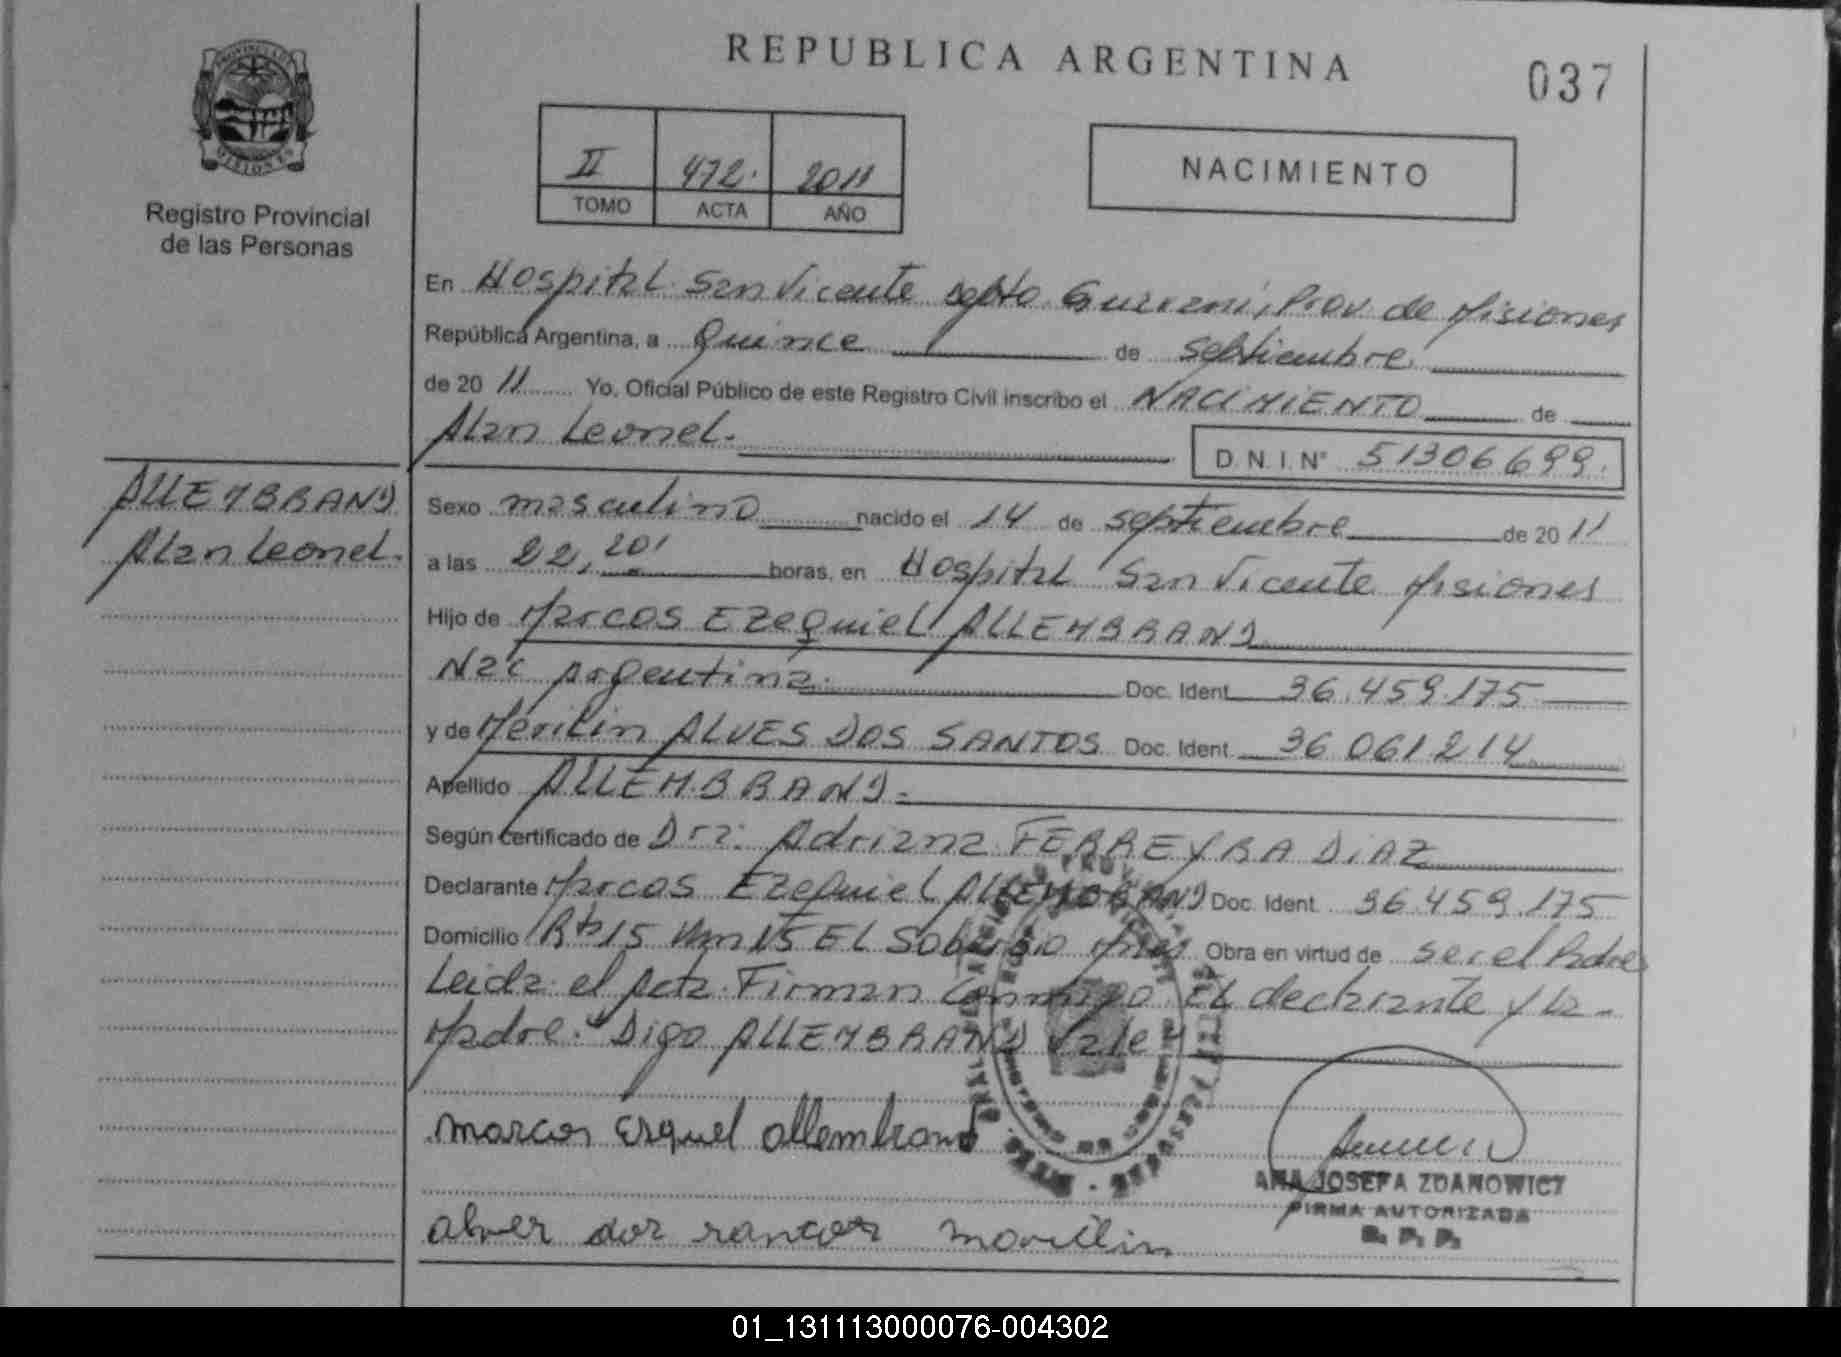 REPUBLICA ARGENTINA
037
PROVINCIA DE
MISIONES
Registro Provincial
de las Personas
II 472. 2011
TOMO ACTA AÑO
NACIMIENTO
En Hospital San Vicente depto Guarani, Prov de Misiones
República Argentina, a quince de septiembre
de 20 11 Yo, Oficial Público de este Registro Civil inscribo el NACIMIENTO de
Alan Leonel.
D.N.I.N° 51306699.
ALLEMBRAND
Alan Leonel.
Sexo masculino nacido el 14 de septiembre de 20 11
a las 22,20' horas, en Hospital San Vicente Misiones
Hijo de Marcos Ezequiel ALLEMBRAND
Nac Argentina. Doc. Ident. 36.459.175
y de Merilin ALVES DOS SANTOS Doc. Ident. 36.061214
Apellido ALLEMBRAND.
Según certificado de Dra. Adriana FERREYRA DiAZ
Declarante Marcos Ezequiel ALLEMBRAND Doc. Ident. 36.459.175
Domicilio Rta 15 Km 15 EL Soberbio Mnes Obra en virtud de ser el Padre
Leida el Acta Firman Conmigo EL declarante y la
Madre. Digo ALLEMBRAND Vale
marcos Esquel allembrand
ANA JOSEFA ZDANOWICZ
FIRMA AUTORIZADA
R. P. P.
alver dos santos
01_131113000076-004302